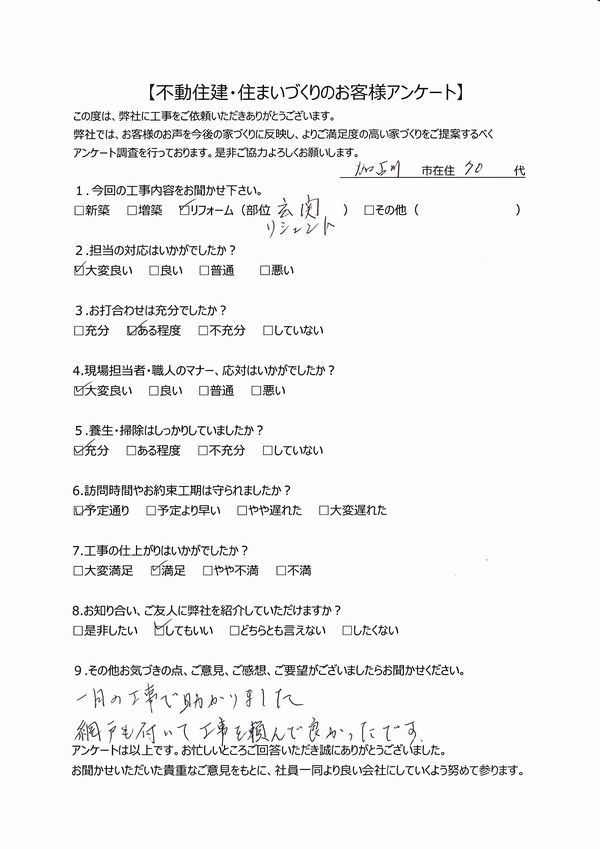 【不動住建・住まいづくりのお客様アンケート】
この度は、弊社に工事をご依頼いただきありがとうございます。
弊社では、お客様のお声を今後の家づくりに反映し、よりご満足度の高い家づくりをご提案するべく
アンケート調査を行っております。是非ご協力よろしくお願いします。
加古川 市在住 70 代
１．今回の工事内容をお聞かせ下さい。
□新築 □増築 ☑リフォーム（部位 玄関 ） □その他（ ）
リシェント
２．担当の対応はいかがでしたか？
☑大変良い □良い □普通 □悪い
３．お打合わせは充分でしたか？
□充分 ☑ある程度 □不充分 □していない
4.現場担当者・職人のマナー、応対はいかがでしたか？
☑大変良い □良い □普通 □悪い
５．養生・掃除はしっかりしていましたか？
☑充分 □ある程度 □不充分 □していない
6.訪問時間やお約束工期は守られましたか？
☑予定通り □予定より早い □やや遅れた □大変遅れた
7.工事の仕上がりはいかがでしたか？
□大変満足 ☑満足 □やや不満 □不満
8.お知り合い、ご友人に弊社を紹介していただけますか？
□是非したい ☑してもいい □どちらとも言えない □したくない
９．その他お気づきの点、ご意見、ご感想、ご要望がございましたらお聞かせください。
一日の工事で助かりました
網戸も付いて工事を頼んで良かったです。
アンケートは以上です。お忙しいところご回答いただき誠にありがとうございました。
お聞かせいただいた貴重なご意見をもとに、社員一同より良い会社にしていくよう努めて参ります。